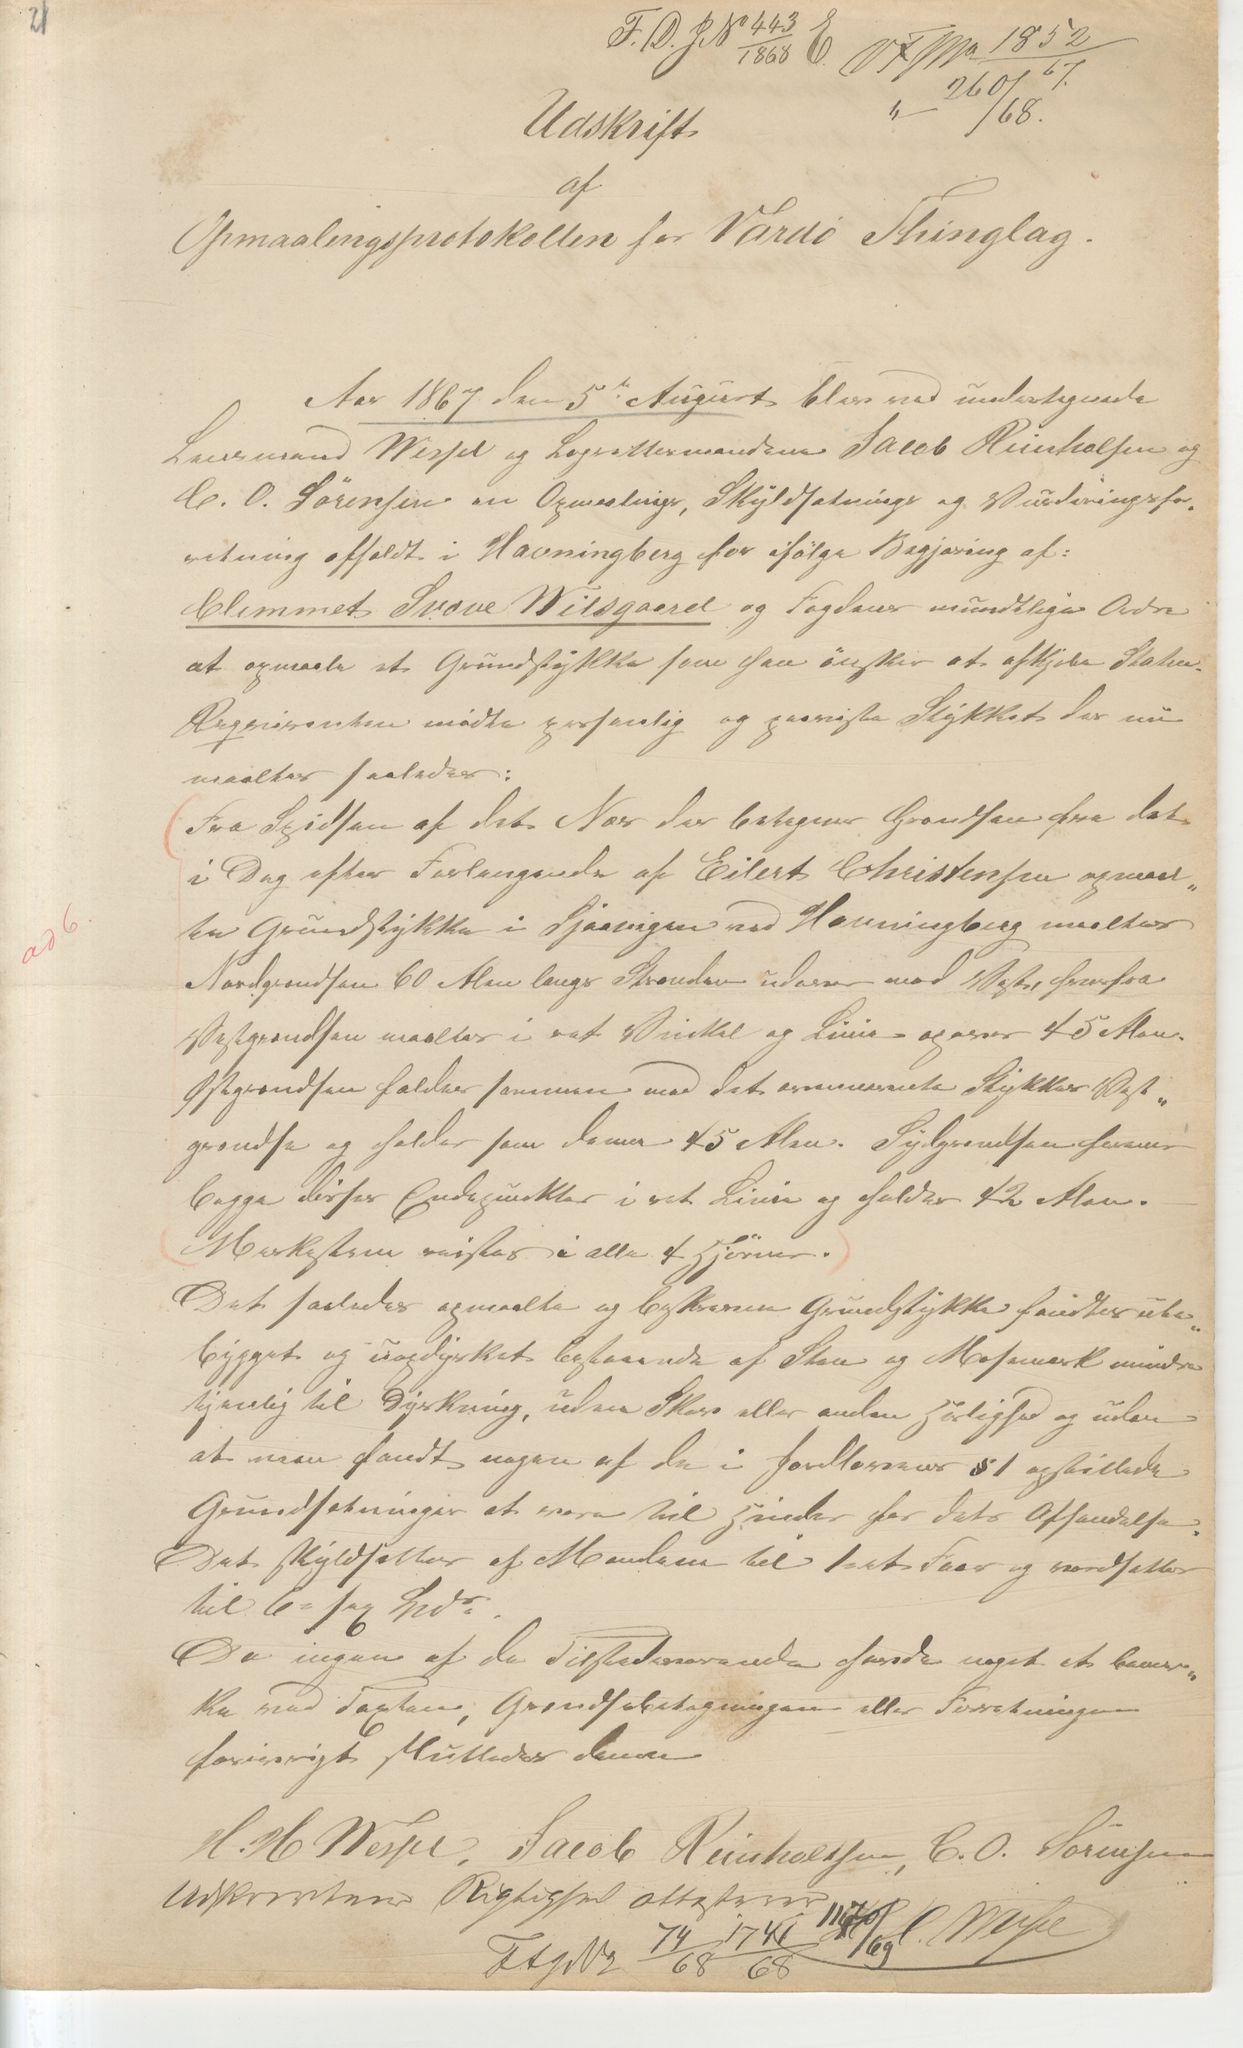 21
F. D. J. No 443/1868 E.
1852/67.
" 260/68.
Udskrift
af
Opmaalingsprotokollen for Vardö Thinglag.
Aar 1867 den 5te August blev ved undertegnede
Lensmand Wessel og Lagrettesmændene Jacob Reinholsen og
C. O. Sörensen en Opmaalings, Skyldsætnings og Vurderingsfor-
retning afholdt i Havningberg for ifölge Begjæring af:
Clemmet Svave Wilsgaard og Fogdens mundtlige Ordre
at opmaale et Grundstykke som han önsker at afkjöbe Staten.
Reqvirenten mödte personlig og paaviste Stykket der nu
maaltes saaledes:
Fra Spidsen af det Næs der betegner Grændsen fra det
i Dag efter Forlangende af Eilert Christensen opmaal„
te Grundstykke i Sjaavigen ved Havningberg maaltes
Nordgrændsen 60 Alen langs Stranden udover mod Vest, herfra
Vestgrændsen maaltes i ret Vinkel og Linie opover 45 Alen.
Östgrændsen falder sammen med det ommeldte Stykkes Vest„
grændse og holder som denne 45 Alen. Sydgrændsen forener
begge disses Endepunkter i ret Linie og holder 42 Alen.
Merkesteine reistes i alle 4 Hjörner.
Det saaledes opmaalte og beskrevne Grundstykke fandtes ube„
bygget og uopdyrket bestaaende af Sten og Mosemark mindre
tjenlig til Dyrkning, uden Skov eller anden Herlighed og uden
at man fandt nogen af de i Jordlovens § 1 opstillede
Grundsætninger at være til Hinder for dets Afhændelse.
Det skyldsattes af Mændene til 1 et Faar og værdsattes
til 6 = sex Spdr.
Da ingen af de Tilstedeværende havde noget at bemær„
ke ved Taxten, Grændsebetegningen eller Forretningen
forövrigt sluttedes denne
H. H Wessel, Jacob Reinholtsen, C. O. Sörensen
Udskriftens Rigtighed attesteres
C. Wessel
74/68 1741/68 /69
ad 6.